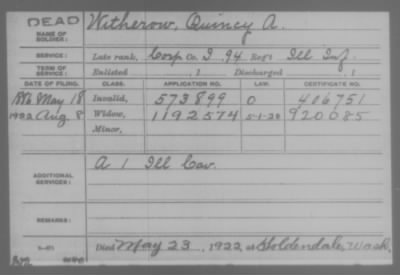 DEAD
NAME OF SOLDIER: Witherow, Quincy A.
SERVICE: Late rank, Corp Co. I 94 Reg't Ill Inf.
TERM OF SERVICE: Enlisted , 1 Discharged , 1
DATE OF FILING. CLASS. APPLICATION NO. LAW. CERTIFICATE NO.
May 18 Invalid, 573899 O 406751
1922 Aug 8 Widow, 1192574 5-1-20 920085
Minor,
ADDITIONAL SERVICES: A 1 Ill Cav.
REMARKS:
Died May 23, 1922, at Goldendale, Wash.